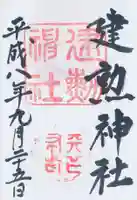 建勲神社
建勲
神社
天下
布武
平成八年九月二十五日